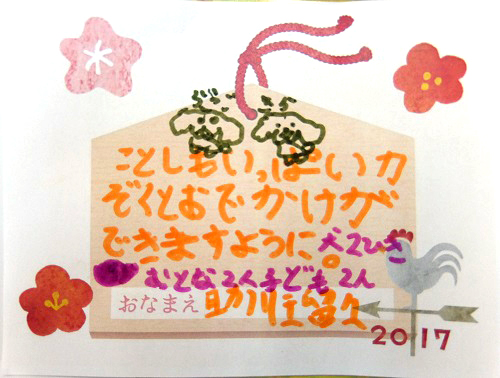 ことしもいっぱいカ
ぞくとおでかけが
できますように。犬2ひき
おとな2人子ども2人
おなまえ 助川
2017